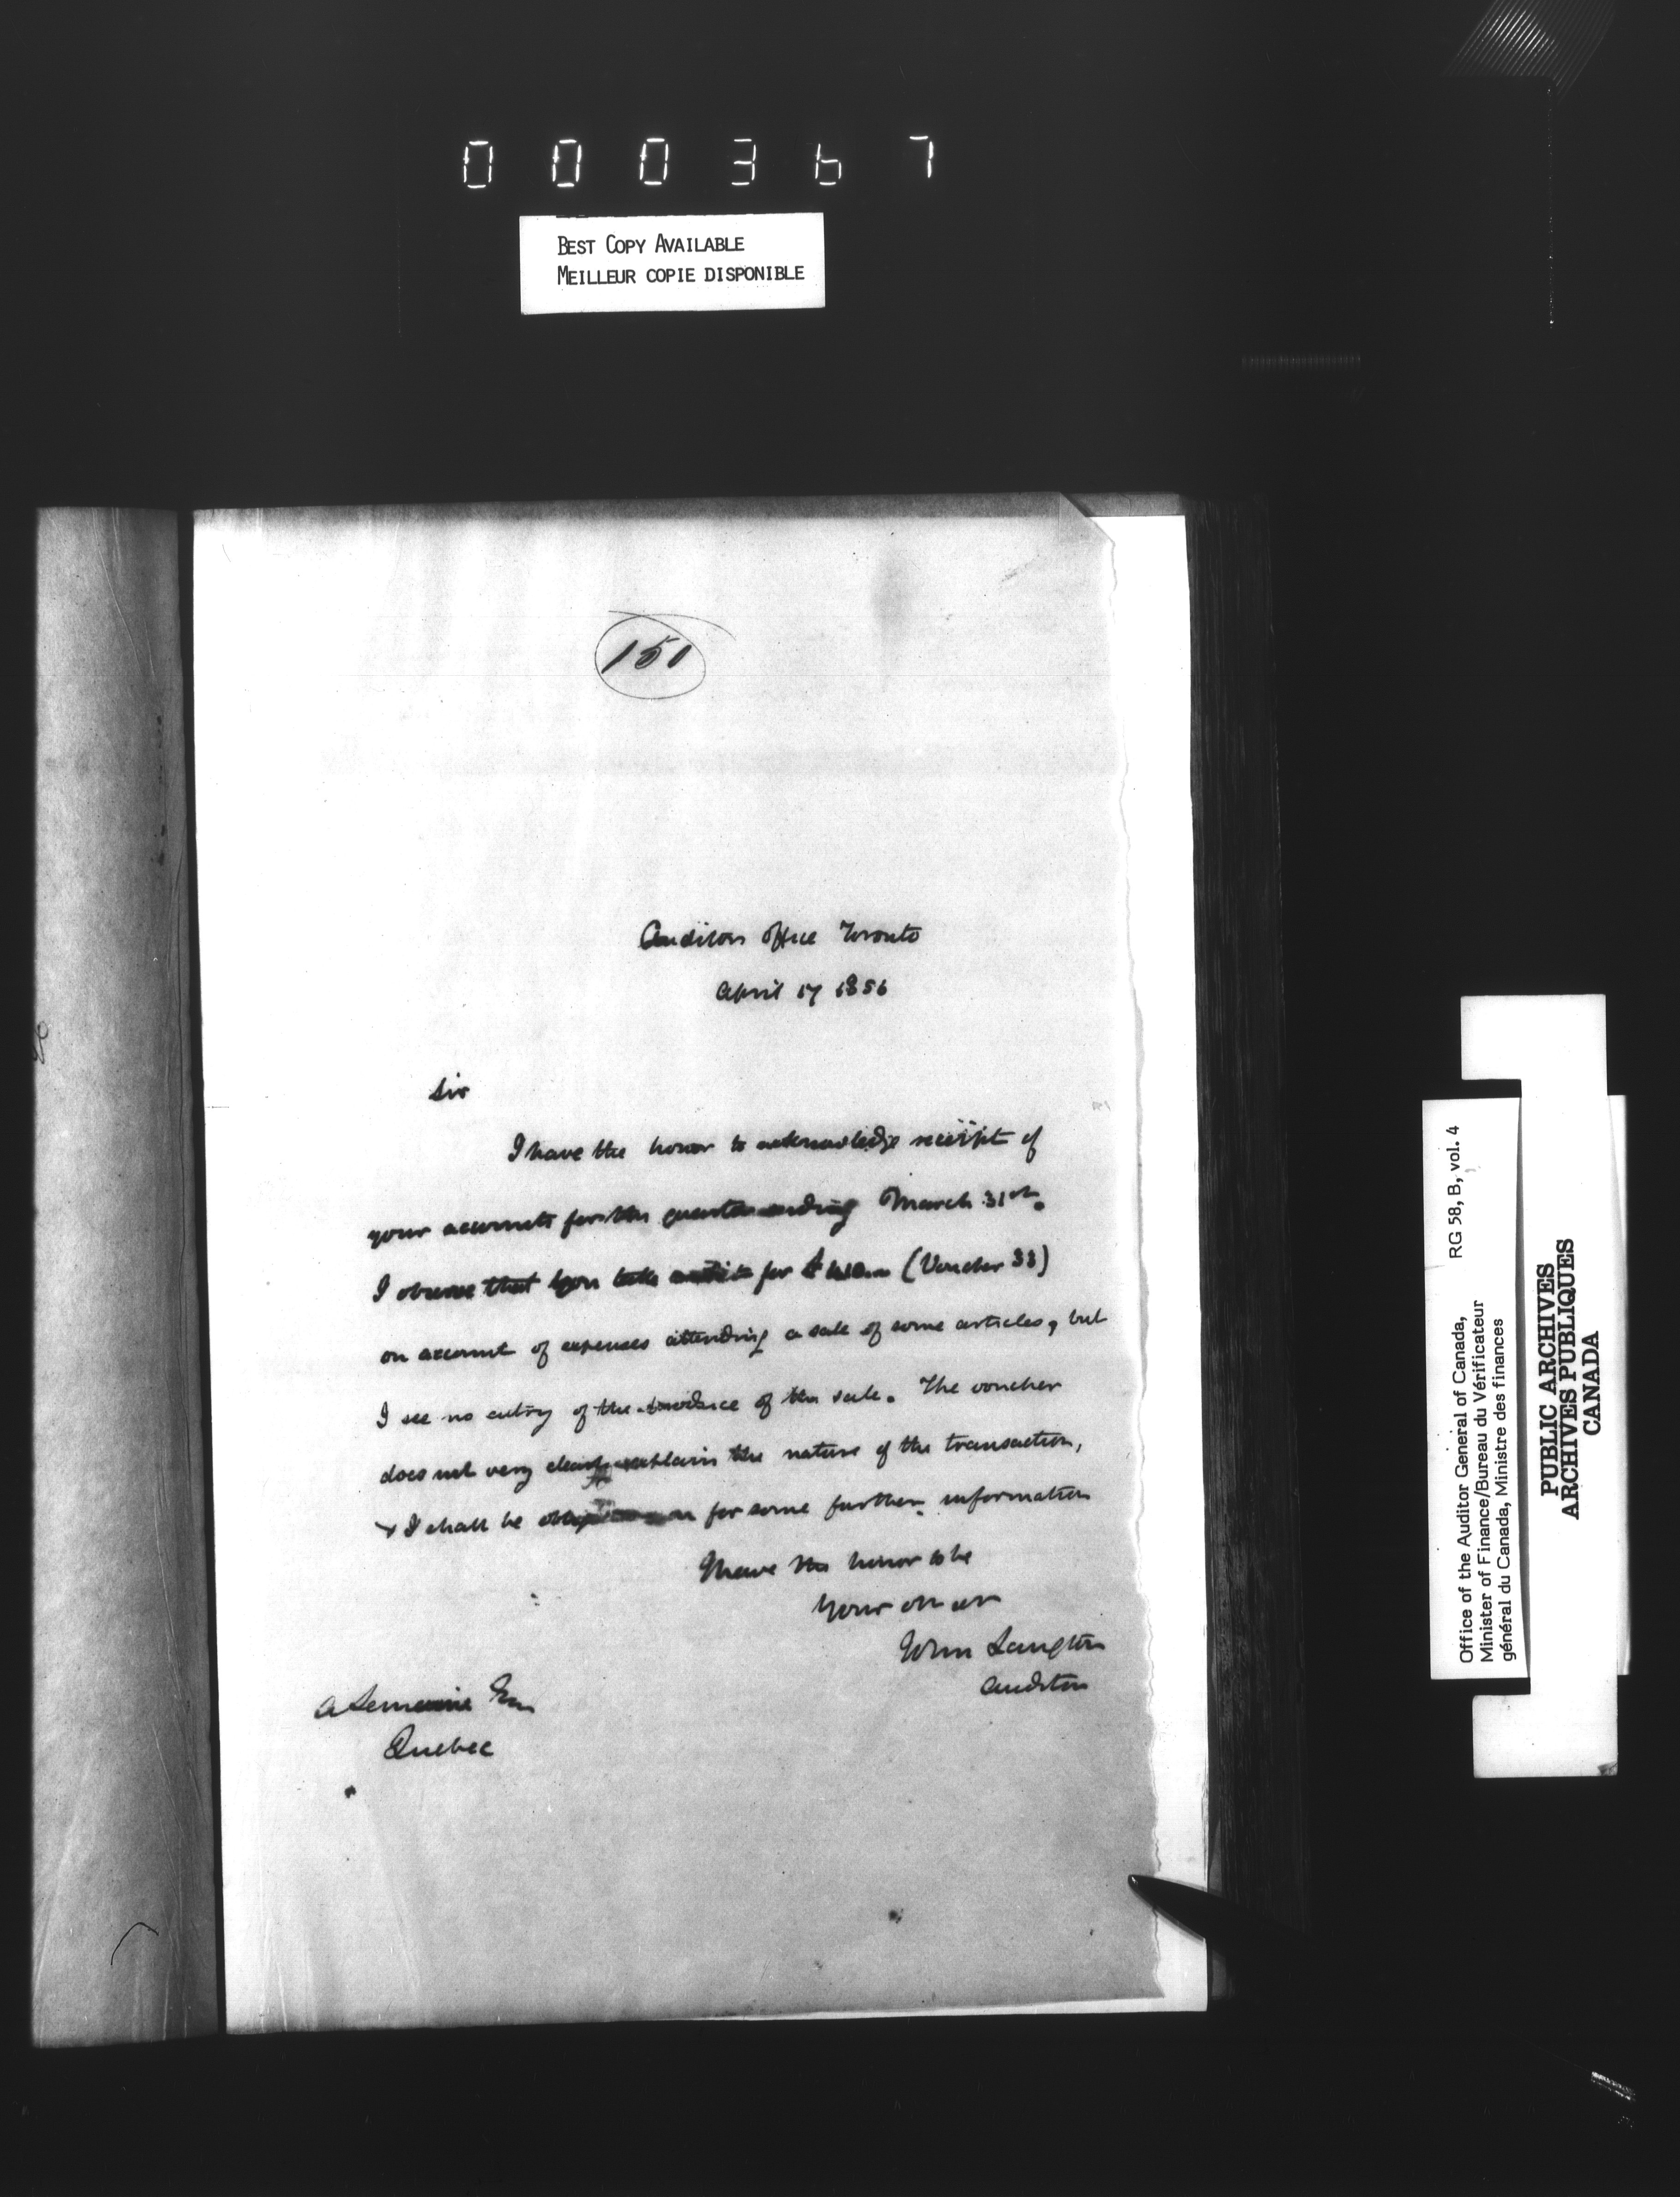 000367
BEST COPY AVAILABLE
MEILLEUR COPIE DISPONIBLE
151
Auditors Office Toronto
April 17 1856
Sir
I have the honor to acknowledge receipt of
your accounts for the quarter ending March 31st.
I observe that you take credit for £ (Voucher 33)
on account of expenses attending a sale of some articles, but
I see no entry of the produce of the sale. The voucher
does not very clearly explain the nature of the transaction,
& I shall be for some further information
I have the honor to be
Your
Langton
Auditor
A Lemoine Esq
Quebec
Office of the Auditor General of Canada, RG 58, B, vol. 4
Minister of Finance/Bureau du Vérificateur
général du Canada, Ministre des finances
PUBLIC ARCHIVES
ARCHIVES PUBLIQUES
CANADA